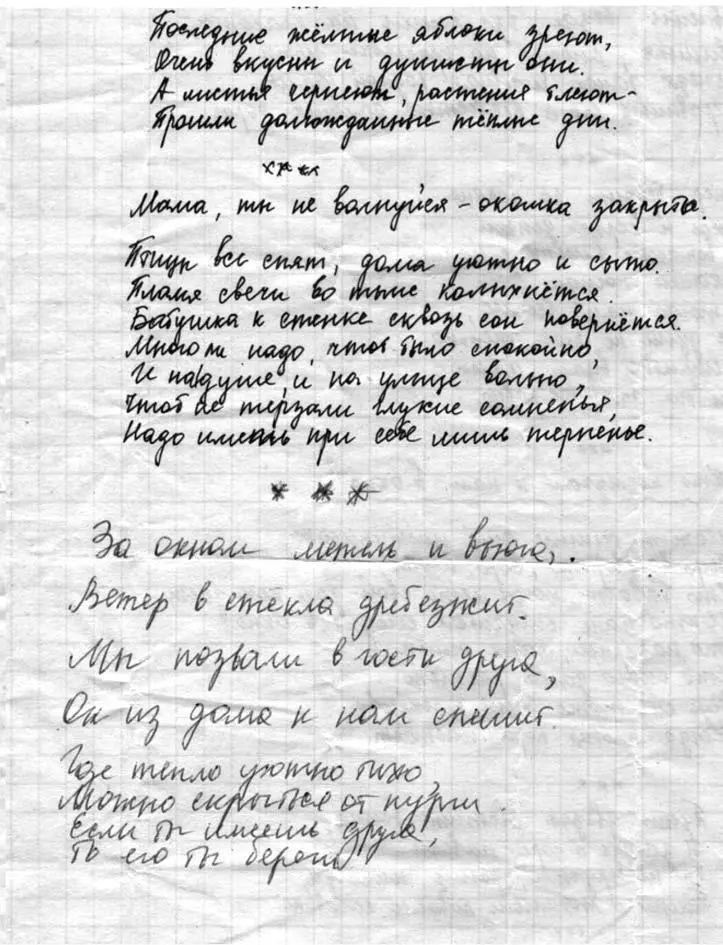 Последние жёлтые яблоки зреют,
Очень вкусны и душисты они.
А листья чернеют, растения блеют-
Прошли долгожданные тёплые дни.
****
Мама, ты не волнуйся - окошка закрыта.
Птицы все спят, дома уютно и сыто.
Пламя свечи во тьме колыхнётся.
Бабушка к стенке сквозь сон повернётся.
Много ли надо, чтоб было спокойно,
И на душе, и на улице вольно,
Чтоб не терзали глухие сомненья,
Надо иметь при себе лишь терпенье.
* * *
За окном метель и вьюга,.
Ветер в стёкла дребезжит.
Мы позвали в гости друга,
Он из дома к нам спешит.
Где тепло уютно тихо,
Можно скрыться от пурги.
Если ты имеешь друга,
То его ты береги